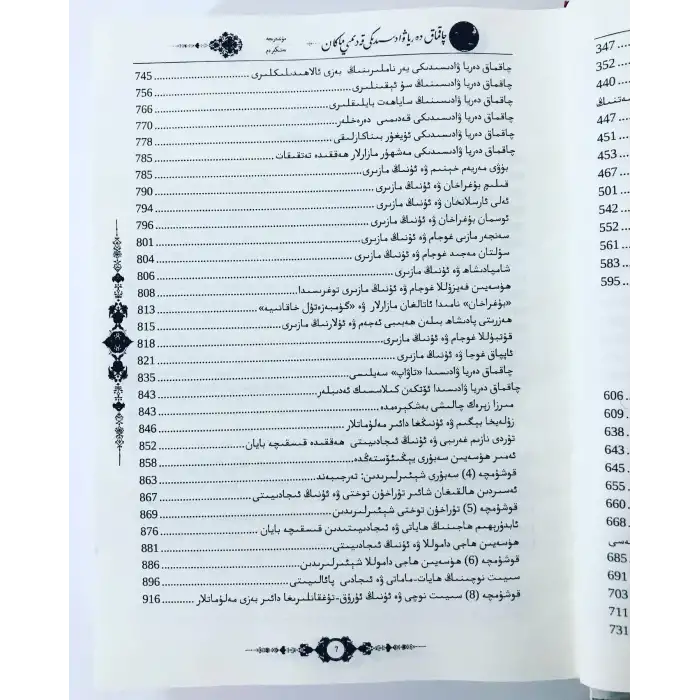 چاقماق دەريا ۋادىسىدىكى قەدىمىي ماكان
مۇندەرىجە
چاقماق دەريا ۋادىسىدىكى يەر ناملىرىنىڭ بەزى ئالاھىدىلىكلىرى 745
چاقماق دەريا ۋادىسىنىڭ سۇ ئېقىنلىرى 756
چاقماق دەريا ۋادىسىنىڭ ساياھەت بايلىقلىرى 766
چاقماق دەريا ۋادىسىدىكى قەدىمىي دەرەخلەر 770
چاقماق دەريا ۋادىسىدىكى ئۇيغۇر بىناكارلىقى 778
چاقماق دەريا ۋادىسىدىكى مەشھۇر مازارلار ھەققىدە تەتقىقات 785
بۈۋى مەريەم خېنىم ۋە ئۇنىڭ مازىرى 785
قىلىچ بۇغراخان ۋە ئۇنىڭ مازىرى 790
ئەلى ئارسلانخان ۋە ئۇنىڭ مازىرى 794
ئوسمان بۇغراخان ۋە ئۇنىڭ مازىرى 796
سەنجەر مازىي غوجام ۋە ئۇنىڭ مازىرى 801
سۇلتان مەجىد غوجام ۋە ئۇنىڭ مازىرى 804
شامپادىشاھ ۋە ئۇنىڭ مازىرى 806
ھۈسەيىن فەيزۇللا غوجام ۋە ئۇنىڭ مازىرى توغرىسىدا 808
«بۇغراخان» نامىدا ئاتالغان مازارلار ۋە «گۈمبەزەتۇل خاقانىيە» 813
ھەزرىتى پادىشاھ بىلەن ھەبىبى ئەجەم ۋە ئۇلارنىڭ مازىرى 815
قۇتبۇللا غوجام ۋە ئۇنىڭ مازىرى 818
ئاپپاق غوجا ۋە ئۇنىڭ مازىرى 821
چاقماق دەريا ۋادىسىدا «تاۋاپ» سەيلىسى 835
چاقماق دەريا ۋادىسىدا ئۆتكەن كىلاسسىك ئەدىبلەر 843
مىرزا زېرەك چالىشى بەشكېرەمدە 843
زۇلەيخا بېگىم ۋە ئۇنىڭغا دائىر مەلۇماتلار 846
تۇردى نازىم غەرىبى ۋە ئۇنىڭ ئىجادىيىتى ھەققىدە قىسقىچە بايان 852
ئەمىر ھۈسەيىن سەبۇرى يېڭىئۆستەڭدە 858
قوشۇمچە (4) سەبۇرى شېئىرلىرىدىن: تەرجىبەند 863
ئەسىردىن ھالقىغان شائىر تۇراخۇن توختى ۋە ئۇنىڭ ئىجادىيىتى 867
قوشۇمچە (5) تۇراخۇن توختى شېئىرلىرىدىن 869
ئابدۇرېھىم ھاجىنىڭ ھاياتى ۋە ئىجادىيىتىدىن قىسقىچە بايان 876
ھۈسەيىن ھاجى داموللا ۋە ئۇنىڭ ئىجادىيىتى 881
قوشۇمچە (6) ھۈسەيىن ھاجى داموللا شېئىرلىرىدىن 886
سىيىت نوچىنىڭ ھايات-ماماتى ۋە ئىجادىي پائالىيىتى 896
قوشۇمچە (8) سىيىت نوچى ۋە ئۇنىڭ ئۇرۇق-تۇغقانلىرىغا دائىر بەزى مەلۇماتلار 916
7
347
352
440
447
451
453
467
501
542
552
561
583
595
606
609
638
643
645
655
660
668
685
691
703
711
731